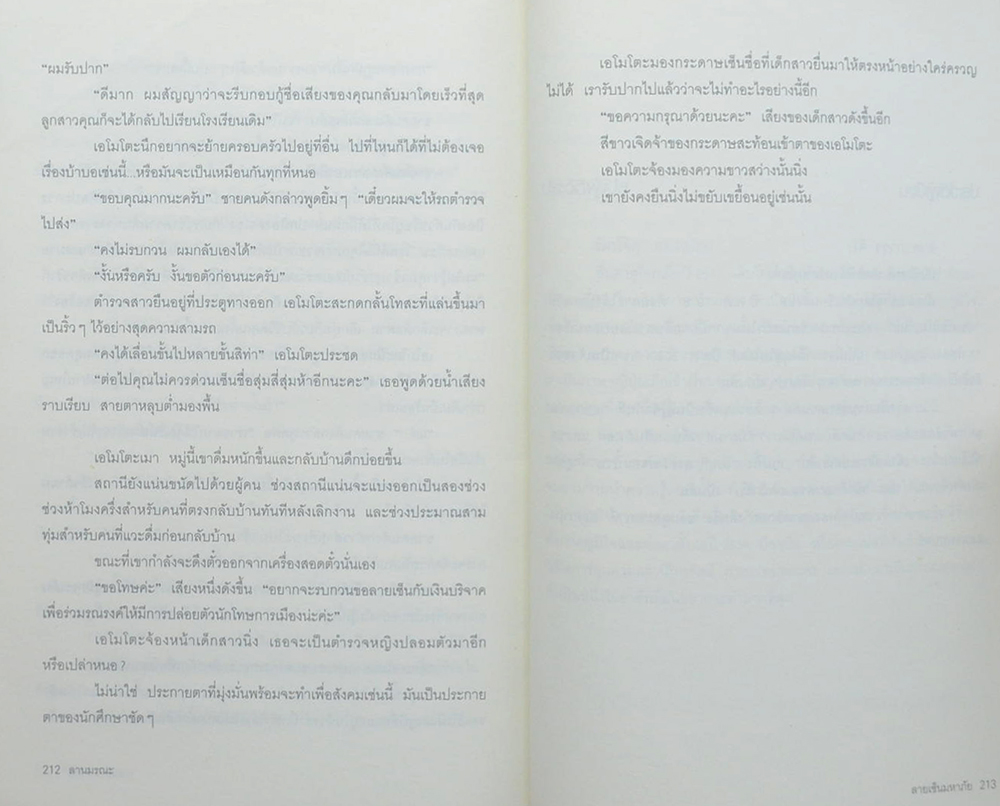 “ผมรับปาก”
“ดีมาก ผมสัญญาว่าจะรีบกอบกู้ชื่อเสียงของคุณกลับมาโดยเร็วที่สุด
ลูกสาวคุณก็จะได้กลับไปเรียนโรงเรียนเดิม”
เอโมโตะนึกอยากจะย้ายครอบครัวไปอยู่ที่อื่น ไปที่ไหนก็ได้ที่ไม่ต้องเจอ
เรื่องบ้าบอเช่นนี้...หรือมันจะเป็นเหมือนกันทุกที่หนอ
“ขอบคุณมากนะครับ” ชายคนดังกล่าวพูดยิ้มๆ “เดี๋ยวผมจะให้รถตำรวจ
ไปส่ง”
“คงไม่รบกวน ผมกลับเองได้”
“งั้นหรือครับ งั้นขอตัวก่อนนะครับ”
ตำรวจสาวยืนอยู่ที่ประตูทางออก เอโมโตะสะกดกลั้นโทสะที่แล่นขึ้นมา
เป็นริ้วๆ ไว้อย่างสุดความสามารถ
“คงได้เลื่อนขั้นไปหลายขั้นสิท่า” เอโมโตะประชด
“ต่อไปคุณไม่ควรด่วนเซ็นชื่อสุ่มสี่สุ่มห้าอีกนะคะ” เธอพูดด้วยน้ำเสียง
ราบเรียบ สายตาหลุบต่ำมองพื้น
เอโมโตะเมา หมู่นี้เขาดื่มหนักขึ้นและกลับบ้านดึกบ่อยขึ้น
สถานียังแน่นขนัดไปด้วยผู้คน ช่วงสถานีแน่นจะแบ่งออกเป็นสองช่วง
ช่วงห้าโมงครึ่งสำหรับคนที่ตรงกลับบ้านทันทีหลังเลิกงาน และช่วงประมาณสาม
ทุ่มสำหรับคนที่แวะดื่มก่อนกลับบ้าน
ขณะที่เขากำลังจะดึงตั๋วออกจากเครื่องสอดตั๋วนั่นเอง
“ขอโทษค่ะ” เสียงหนึ่งดังขึ้น “อยากจะรบกวนขอลายเซ็นกับเงินบริจาค
เพื่อร่วมรณรงค์ให้มีการปล่อยตัวนักโทษการเมืองน่ะค่ะ”
เอโมโตะจ้องหน้าเด็กสาวนิ่ง เธอจะเป็นตำรวจหญิงปลอมตัวมาอีก
หรือเปล่าหนอ?
ไม่น่าใช่ ประกายตาที่มุ่งมั่นพร้อมจะทำเพื่อสังคมเช่นนี้ มันเป็นประกาย
ตาของนักศึกษาชัดๆ
212 ลานมรณะ
เอโมโตะมองกระดาษเซ็นชื่อที่เด็กสาวยื่นมาให้ตรงหน้าอย่างใคร่ครวญ
ไม่ได้ เรารับปากไปแล้วว่าจะไม่ทำอะไรอย่างนี้อีก
“ขอความกรุณาด้วยนะคะ” เสียงของเด็กสาวดังขึ้นอีก
สีขาวเจิดจ้าของกระดาษสะท้อนเข้าตาของเอโมโตะ
เอโมโตะจ้องมองความขาวสว่างนั้นนิ่ง
เขายังคงยืนนิ่งไม่ขยับเขยื้อนอยู่เช่นนั้น
ลายเซ็นมหาภัย 213